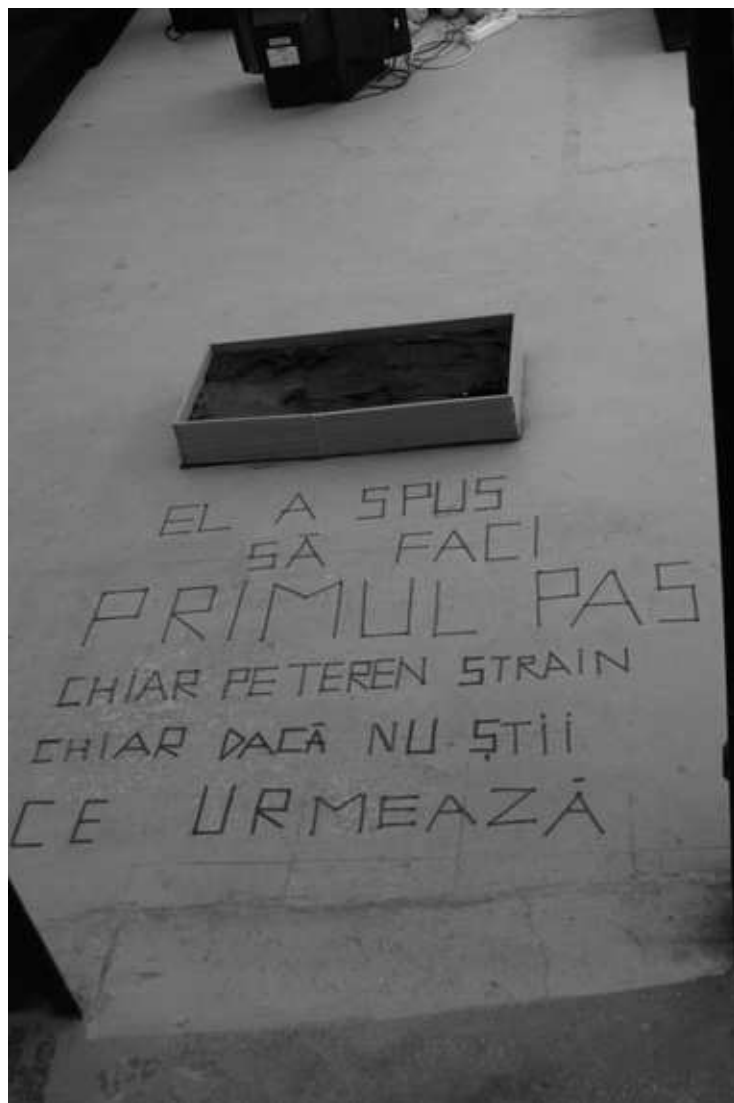 EL A SPUS
SĂ FACI
PRIMUL PAS
CHIAR PE TEREN STRAIN
CHIAR DACĂ NU ȘTII
CE URMEAZĂ